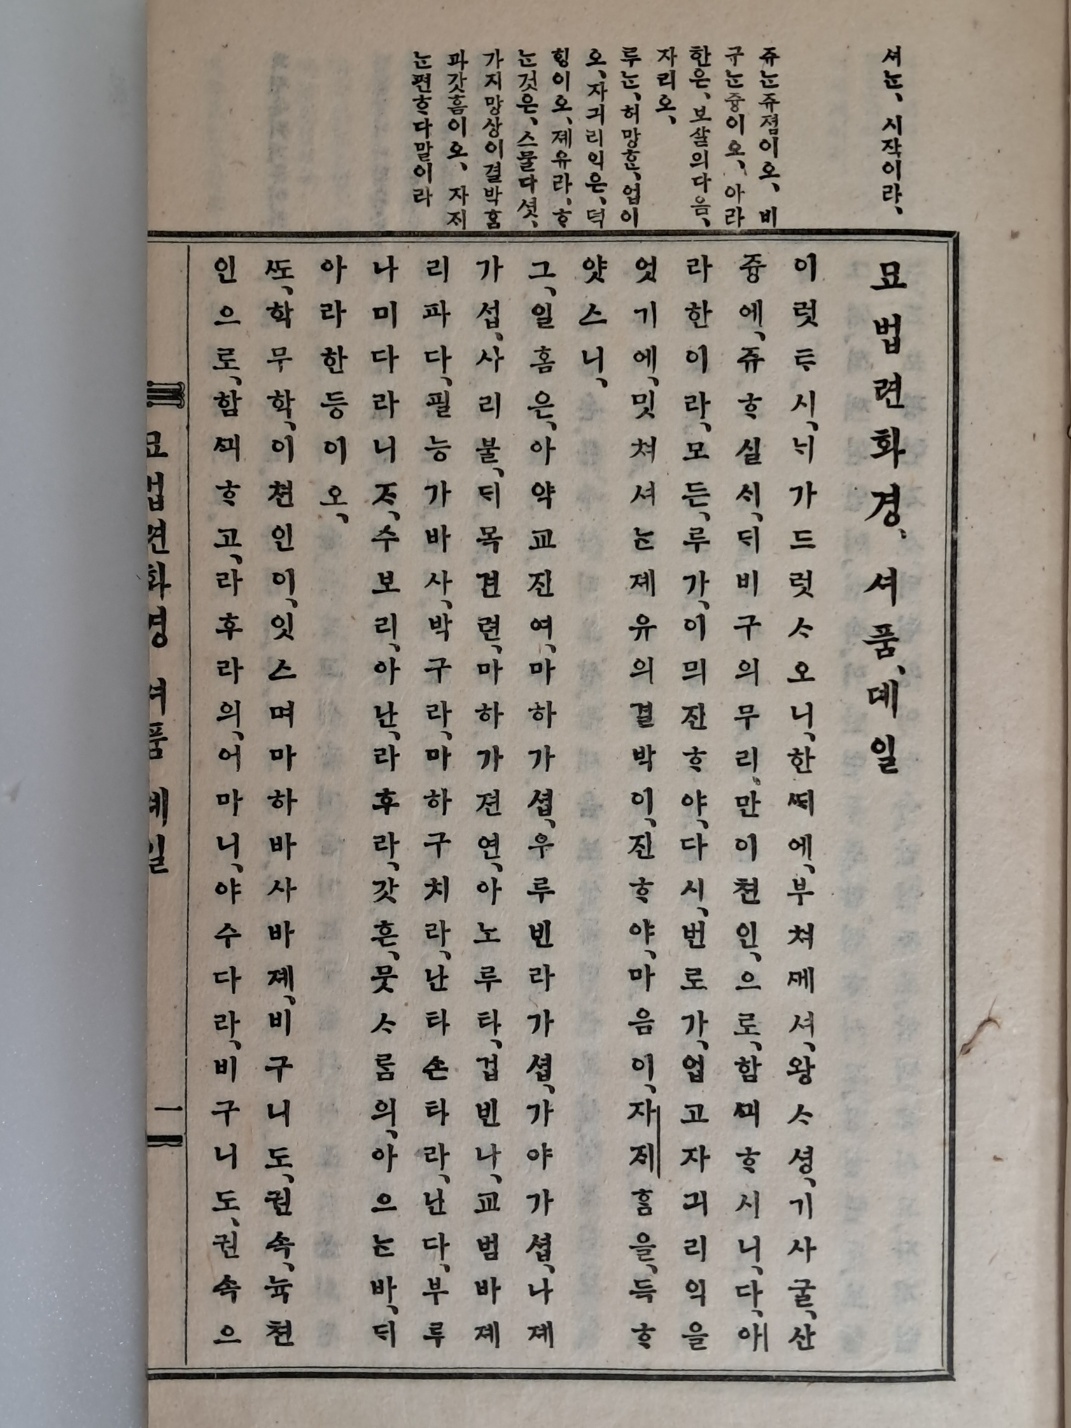 셔ᄂᆞᆫ, 시작이라,
쥬ᄂᆞᆫ쥬졈이오, 비
구ᄂᆞᆫ즁이오, 아라
한은, 보살의다음,
자리오,
루ᄂᆞᆫ, 허망ᄒᆞᆫ, 업이
오, 자긔리익은, 덕
ᄒᆡᆼ이오, 졔유라, ᄒᆞ
ᄂᆞᆫ것은, 스물다셧,
가지망상이결박홈
파갓홈이오, 자ᄌᆡ
ᄂᆞᆫ편ᄒᆞ다말이라
묘법련화경, 셔품, 뎨일
이럿ᄐᆞ시, ᄂᆡ가드럿ᄉᆞ오니, 한ᄯᅢ에, 부쳐ᄭᅦ셔, 왕ᄉᆞ셩, 기사굴, 산
즁에, 쥬ᄒᆞ실ᄉᆡ, ᄃᆡ비구의무리, 만이쳔인, 으로, 함ᄭᅴᄒᆞ시니, 다, 아
라한이라, 모든, 루가, 이믜진ᄒᆞ야, 다시, 번로가, 업고자긔리익을
엇기에, 밋쳐셔ᄂᆞᆫ졔유의결박이, 진ᄒᆞ야, 마음이, 자ᄌᆡ홈을, 득ᄒᆞ
얏스니,
그, 일홈은, 아약교진여, 마하가셥, 우루빈라가셥, 가야가셥, 나졔
가섭, 사리불, ᄃᆡ목견련, 마하가젼연, 아노루타, 겁빈나, 교범바졔
리파다, 필능가바사, 박구라, 마하구치라, 난타손타라, 난다, 부루
나미다라니ᄌᆞ, 수보리, 아난, 라후라, 갓흔, 뭇ᄉᆞ룸의, 아으ᄂᆞᆫ바, ᄃᆡ
아라한등이오,
ᄯᅩ, 학무학, 이쳔인이, 잇스며마하바사바졔, 비구니도, 권속, 뉵쳔
인으로, 함ᄭᅴᄒᆞ고, 라후라의, 어마니, 야수다라, 비구니도, 권속으
묘법련화경 셔품 뎨일
一